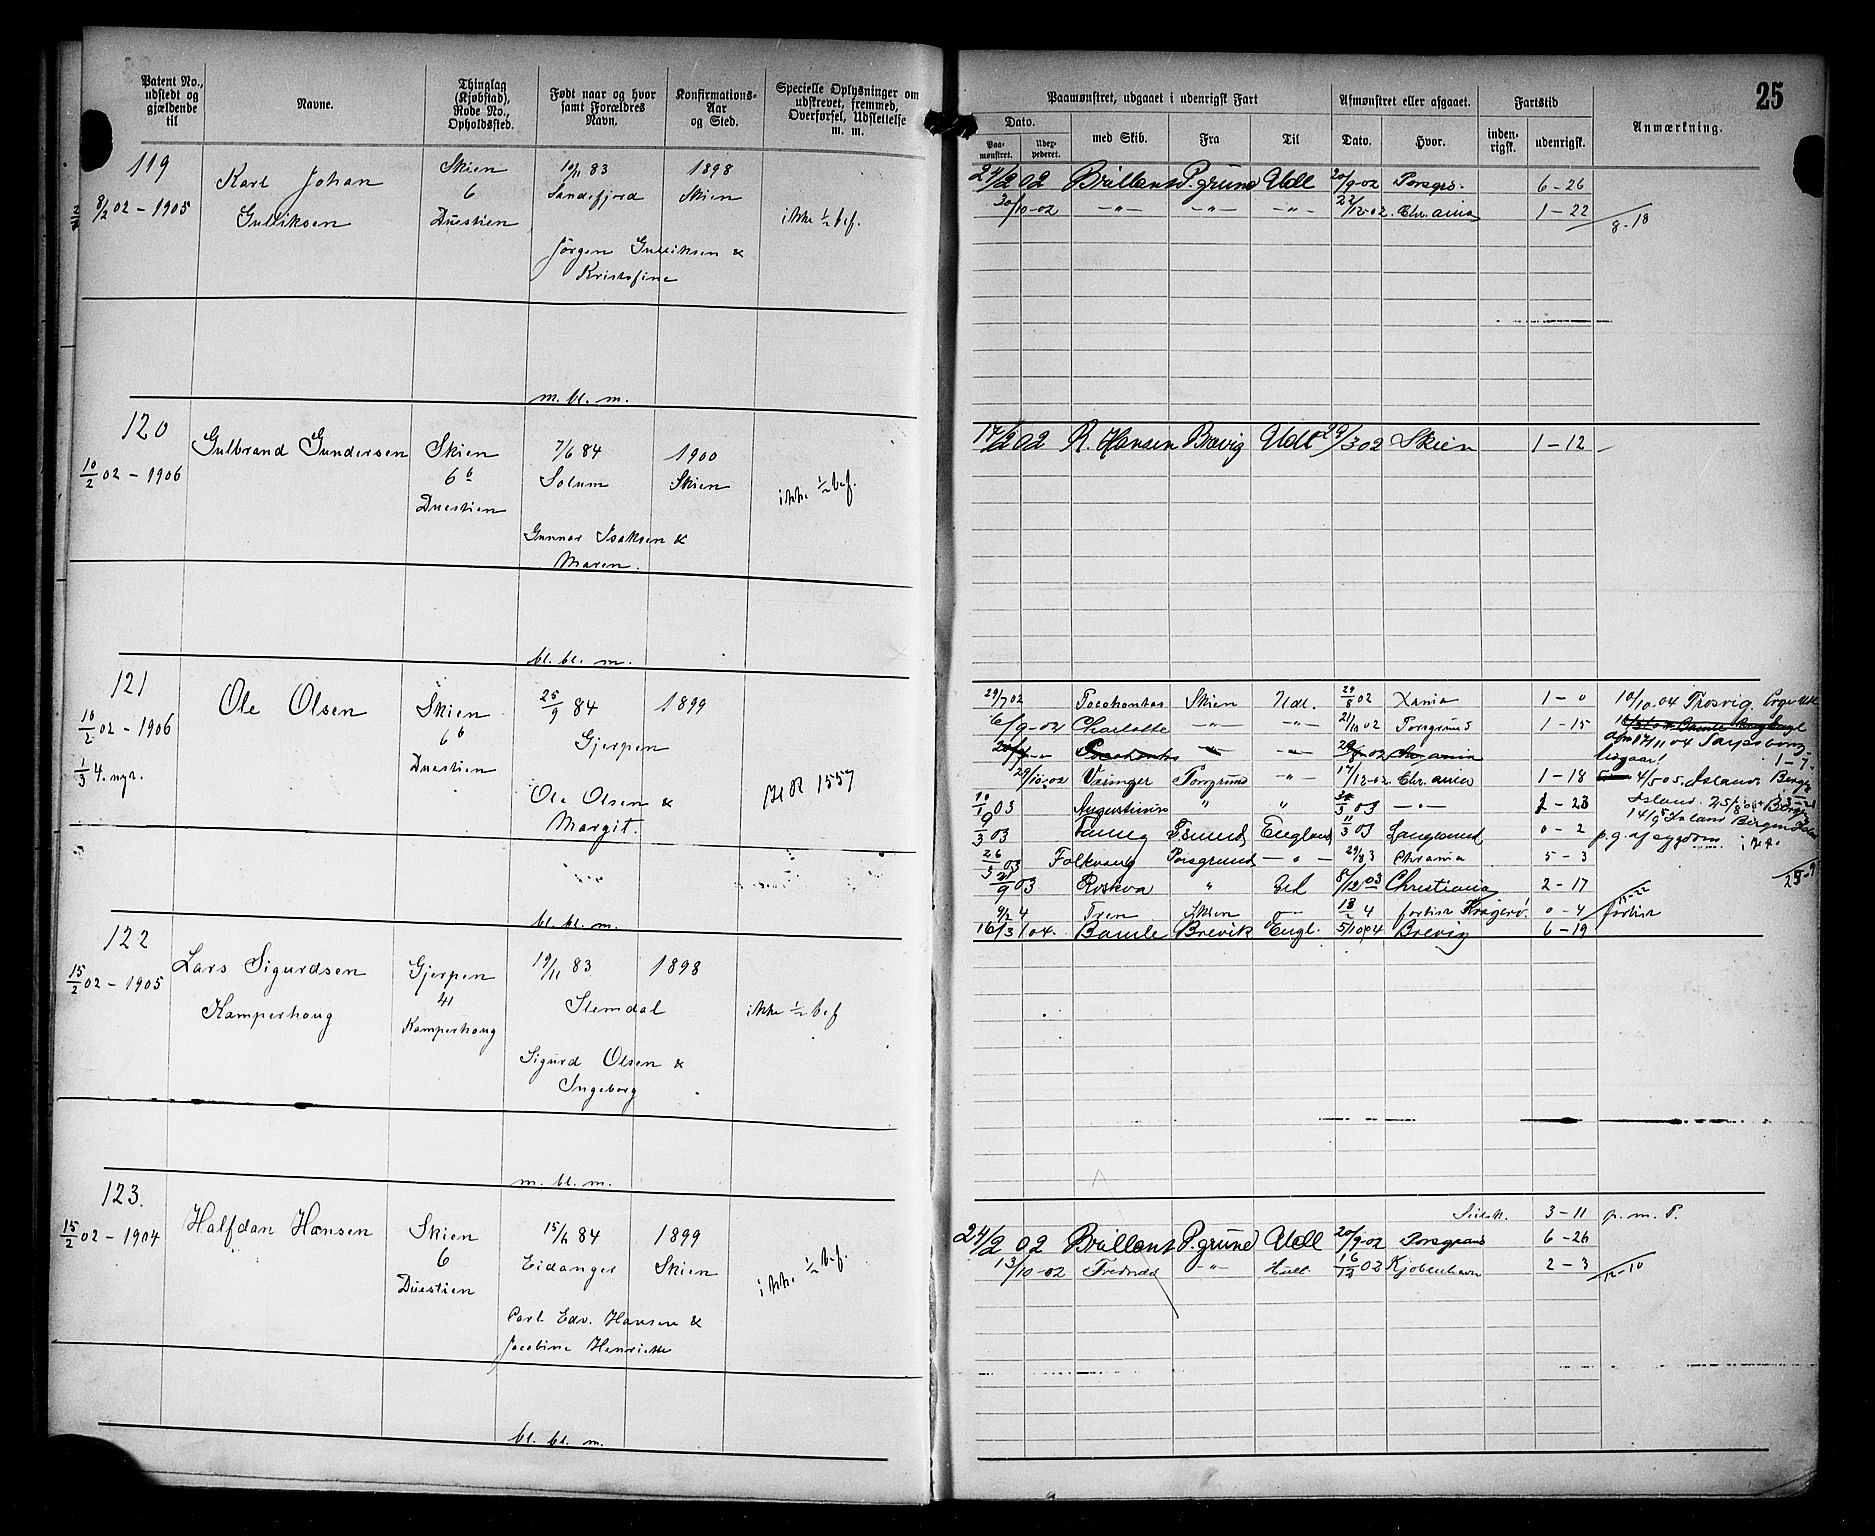 25
Patent No., udstedt og gjældende til
Navne.
Thinglag (Kjøbstad), Rode No., Opholdssted.
Født naar og hvor samt Forældres Navn.
Konfirmations-Aar og Sted.
Specielle Oplysninger om udskrevet, fremmed, Overførsel, Udslettelse m. m.
Paamønstret, udgaaet i udenrigsk Fart
Afmønstret eller afgaaet.
Fartstid
Anmærkning.
Dato.
Paa-mønstret.
med Skib.
Fra
Til
Dato.
Hvor.
inden-rigsk.
udenrigsk.
119
8/2 02 - 1905
Karl Johan
Gulliksen
Skien
6
Duestien
83
Sandefjord
Jörgen Gulliksen &
Kristofine
1898
Skien
ikke 1/2 bef.
m. bl. m.
24/2 02 Brillant P.grund Udl 20/9-02 Porsgr. 6-26
30/10-02 -"- -"- -"- 22/12-02 Chr.ania 1-22
8-18
120
10/2 02 - 1906
Gulbrand Gundersen
Skien
6 b
Duestien
7/6 84
Solum
Gunnar Isaksen &
Maren.
1900
Skien
ikke 1/2 bef.
bl. bl. m.
17/2 02 R. Hansen Brevig Udl 29/3 02 Skien 1-12
121
10/2 02 - 1906
1/3 4. nyt.
Ole Olsen
Skien
6 b
Duestien
25/9 84
Gjerpen
Ole Olsen &
Margit.
1899
HR 1557
bl. bl. m.
29/7 02 Pocahontas Skien Udl. 29/8 02 Xania 1-0
6/9-02 Charlotte -"- -"- 21/10 02 Porsgrund 1-15
Pocahontas -"- -"- Chr.ania
29/10-02 Varinger Porsgrund -"- 17/12-02 Chr.ania 1-18
10/1 03 Augustinus " " 03 -"- 2-23
9/3 03 England 11/3 03 Langesund 0-2
26/5 03 Folkvang Porsgrund -"- 29/8 3 Chrania 5-3
21/9 03 Roskva " Udl 8/12 03 Christiania 2-17
9/2 4 Skien 18/2 4 forlist Kragerö. 0-4 forlist
16/3 04. Bamle Brevik Engl. 5/10 04 Brevig 6-19
10/10.04 Thosvig.
17/11 04 Sarpsborg
4/5 05. Island. Bergen
Island. 25/8
14/9 Island Bergen
p.g. af sygdom
122
15/2 02 - 1905
Lars Sigurdsen
Kamperhoug
Gjerpen
41
Kamperhoug
19/11 83
Slemdal
Sigurd Olsen &
Ingeborg
1898
ikke 1/2 bef
m. bl. m.
123.
15/2 02 - 1904
Halfdan Hansen
Skien
6
Duestien
84
Eidanger
Carl Edv. Hansen &
Jacobine Henriette
1899
Skien
ikke 1/2 bef.
bl. bl. m.
3-11 p. m. P.
24/2 02 Brillant P.grund Udl 20/9-02 Porsgrund 6-26
13/10-02 -"- 16/12 02 Kjöbenhavn 2-3
12-10